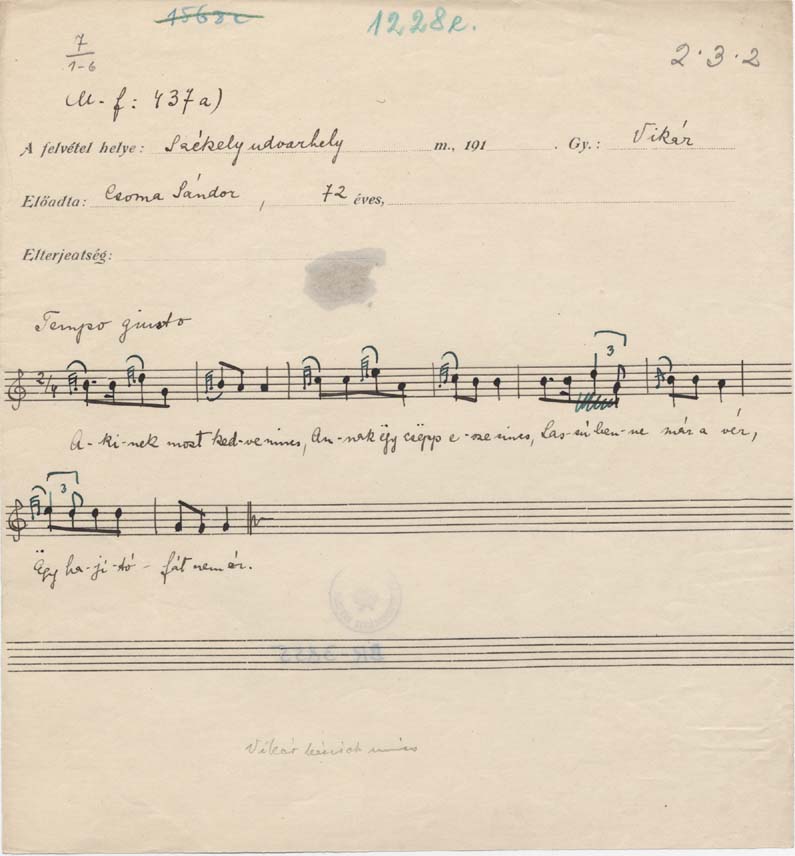 1568c
1228e.
7
1-6
2·3·2
M-f: 437a)
A felvétel helye: Székelyudvarhely m., 191 . Gy.: Vikár
Előadta: Csoma Sándor, 72 éves,
Elterjedtség:
Tempo giusto
3
2/4
A-ki-nek most ked-ve nincs, An-nak ëgy csëpp e-sze nincs, Las-sú ben-ne már a vér,
3
Ëgy ha-jí-tó-fát nem ér.
BR-3855
Vikár